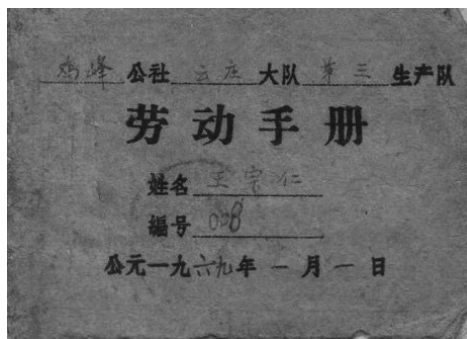 鸡峰公社云庄大队第三生产队
劳动手册
姓名王宗仁
编号008
公元一九六九年一月一日